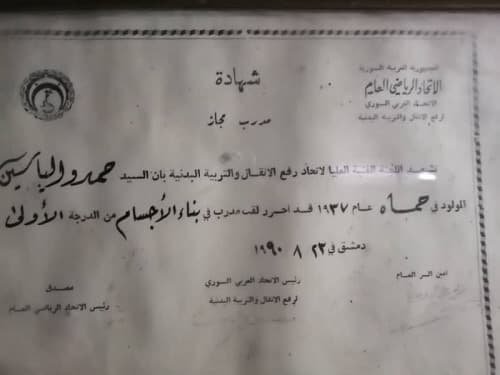 الجمهورية العربية السورية
الاتحاد الرياضي العام
الاتحاد العربي السوري
لرفع الاثقال والتربية البدنية
شهادة
مدرب مجاز
تشهد اللجنة الفنية العليا لاتحاد رفع الاثقال والتربية البدنية بان السيد حمدو الياسين
المولود في حماه عام ١٩٣٧ قد احرز لقب مدرب في بناء الأجسام من الدرجة الأولى
دمشق في ٢٣ ٨ ١٩٩٠
امين السر العام
رئيس الاتحاد العربي السوري
لرفع الاثقال والتربية البدنية
مصدق
رئيس الاتحاد الرياضي العام